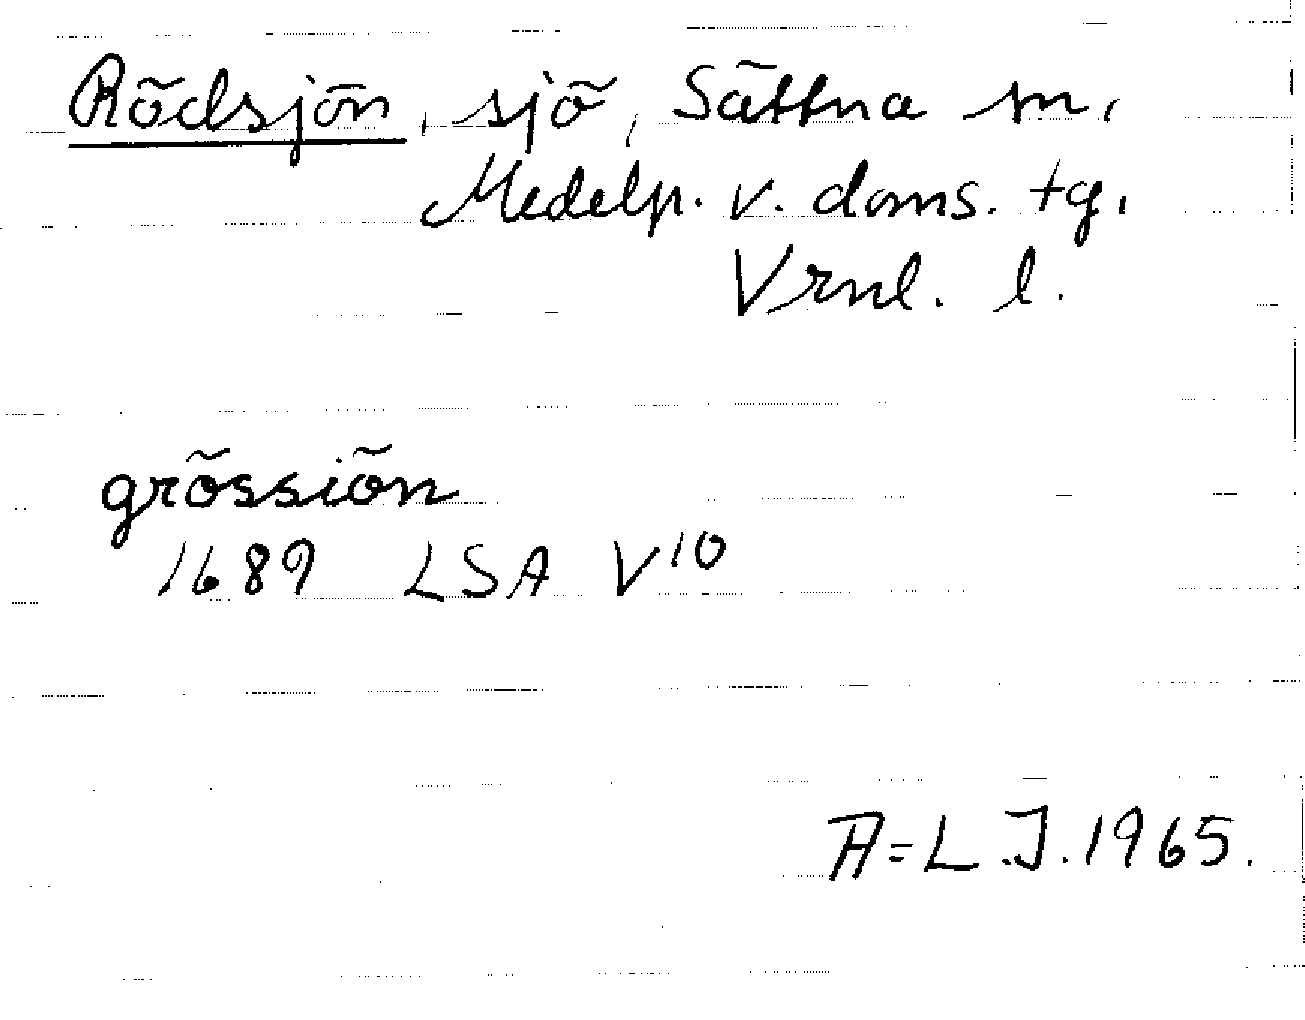 Rödsjön, sjö, Sättna sn,
Medelp. v. doms. tg.
Vrnl. l.
grössiön
1689 LSA V10
A=L.J. 1965.